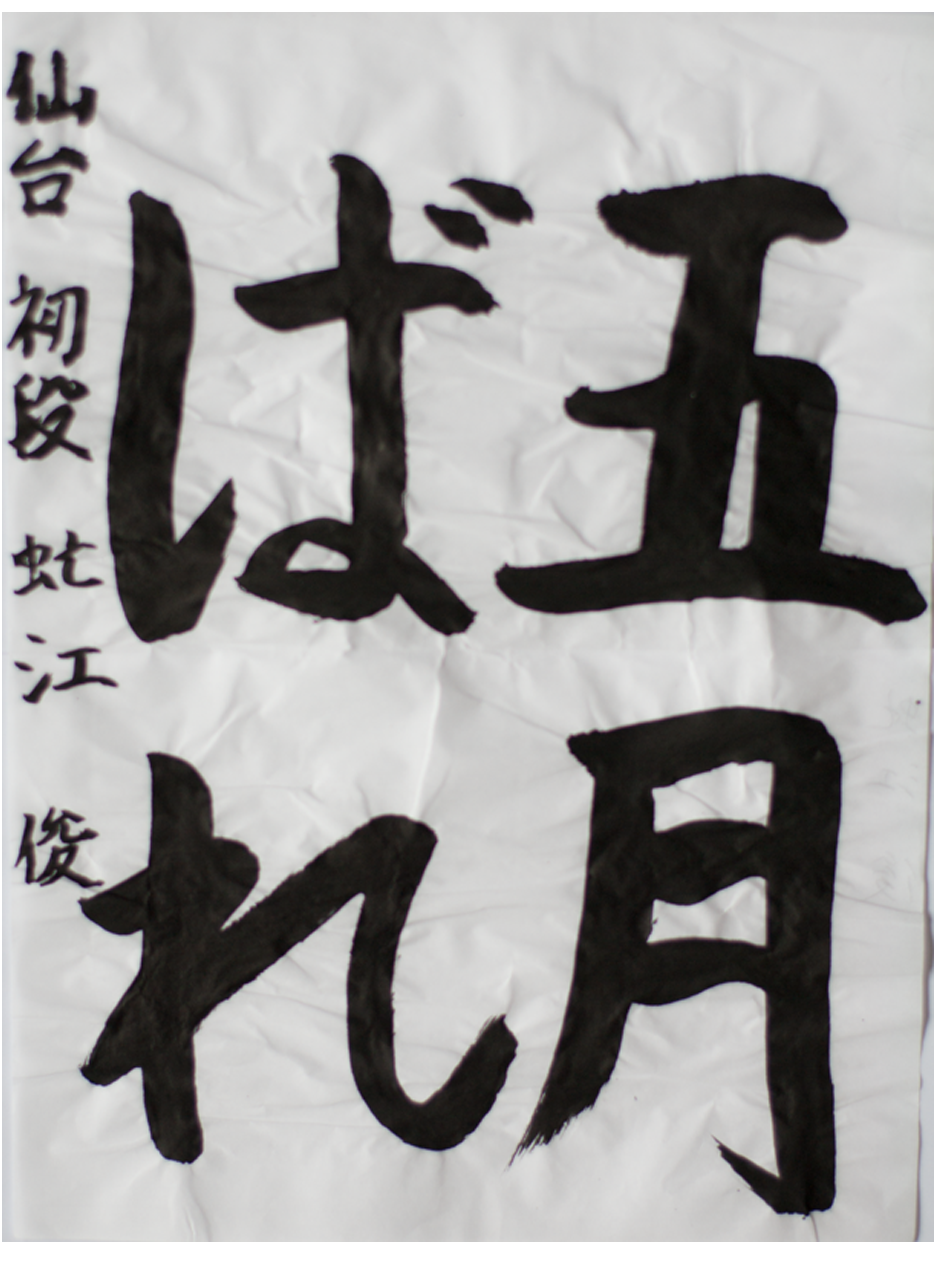 五月
ばれ
仙台 初段 虻江 俊